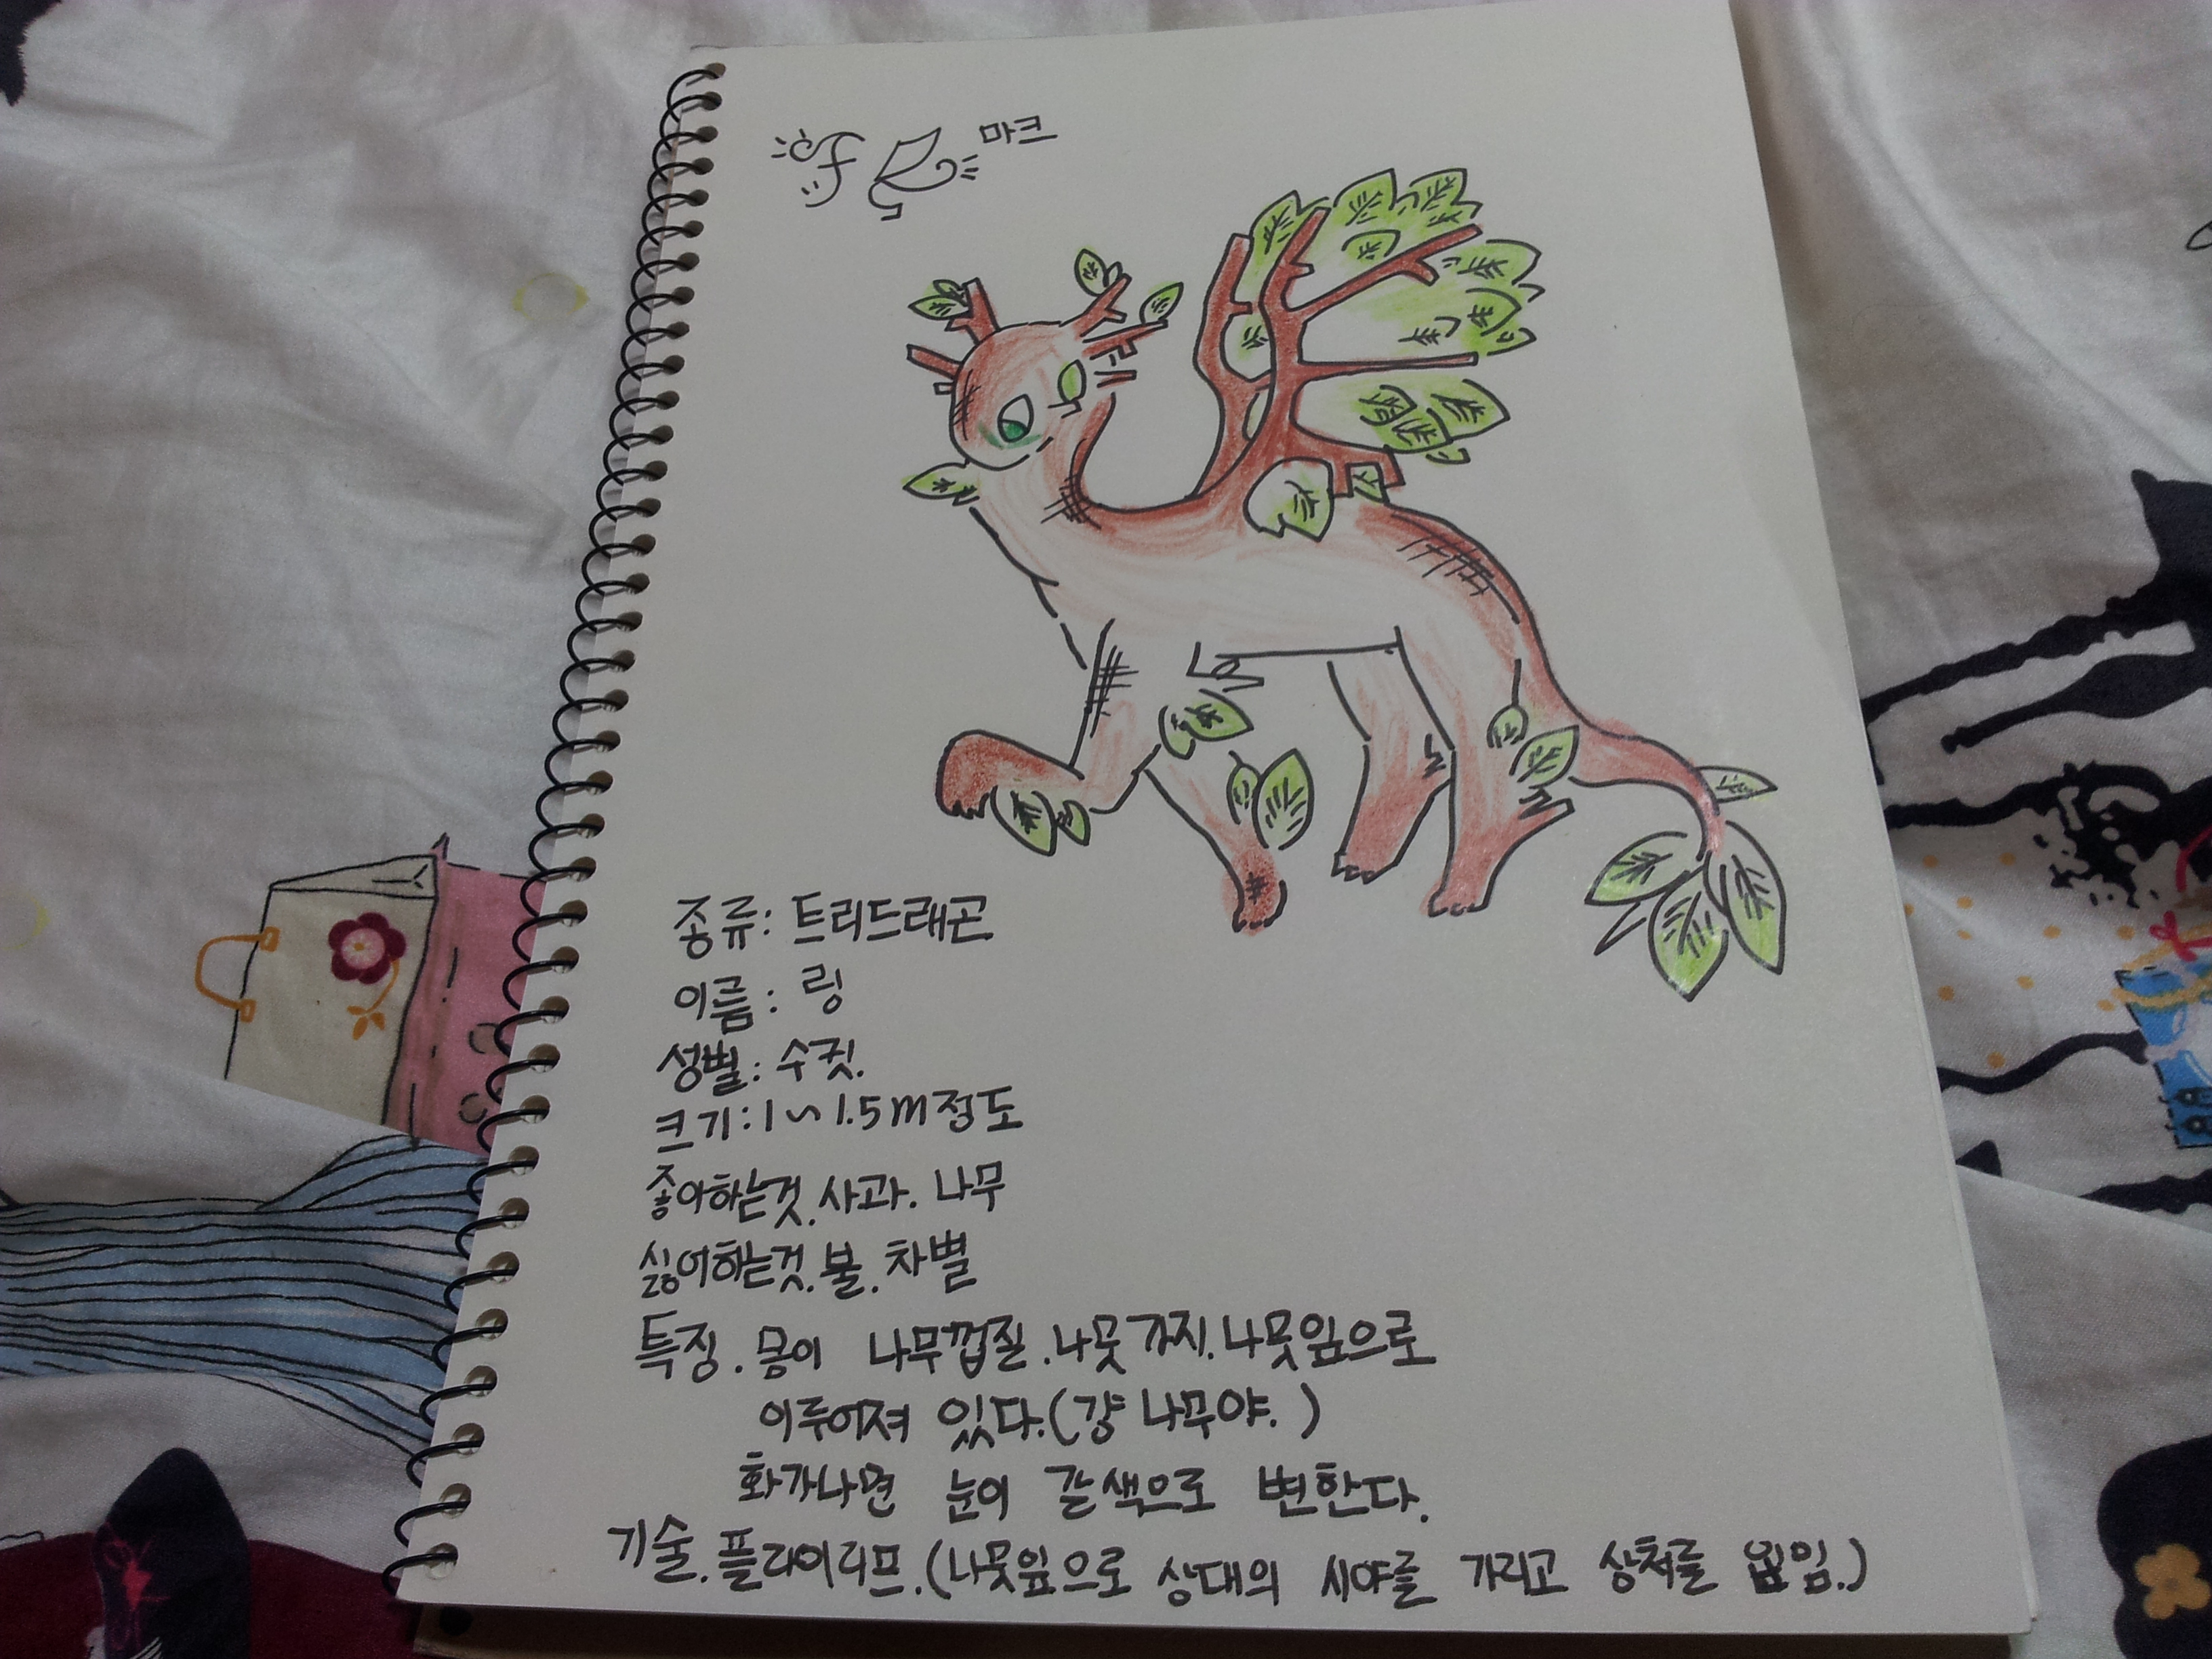 마크
종류: 트리드래곤
이름: 링
성별: 수컷.
크기: 1~1.5m정도
좋아하는것. 사과. 나무
싫어하는것. 불. 차별
특징. 몸이 나무껍질. 나뭇가지. 나뭇잎으로
이루어져 있다.(걍 나무야.)
화가나면 눈이 갈색으로 변한다.
기술. 플라이리프.(나뭇잎으로 상대의 시야를 가리고 상처를 입힘.)